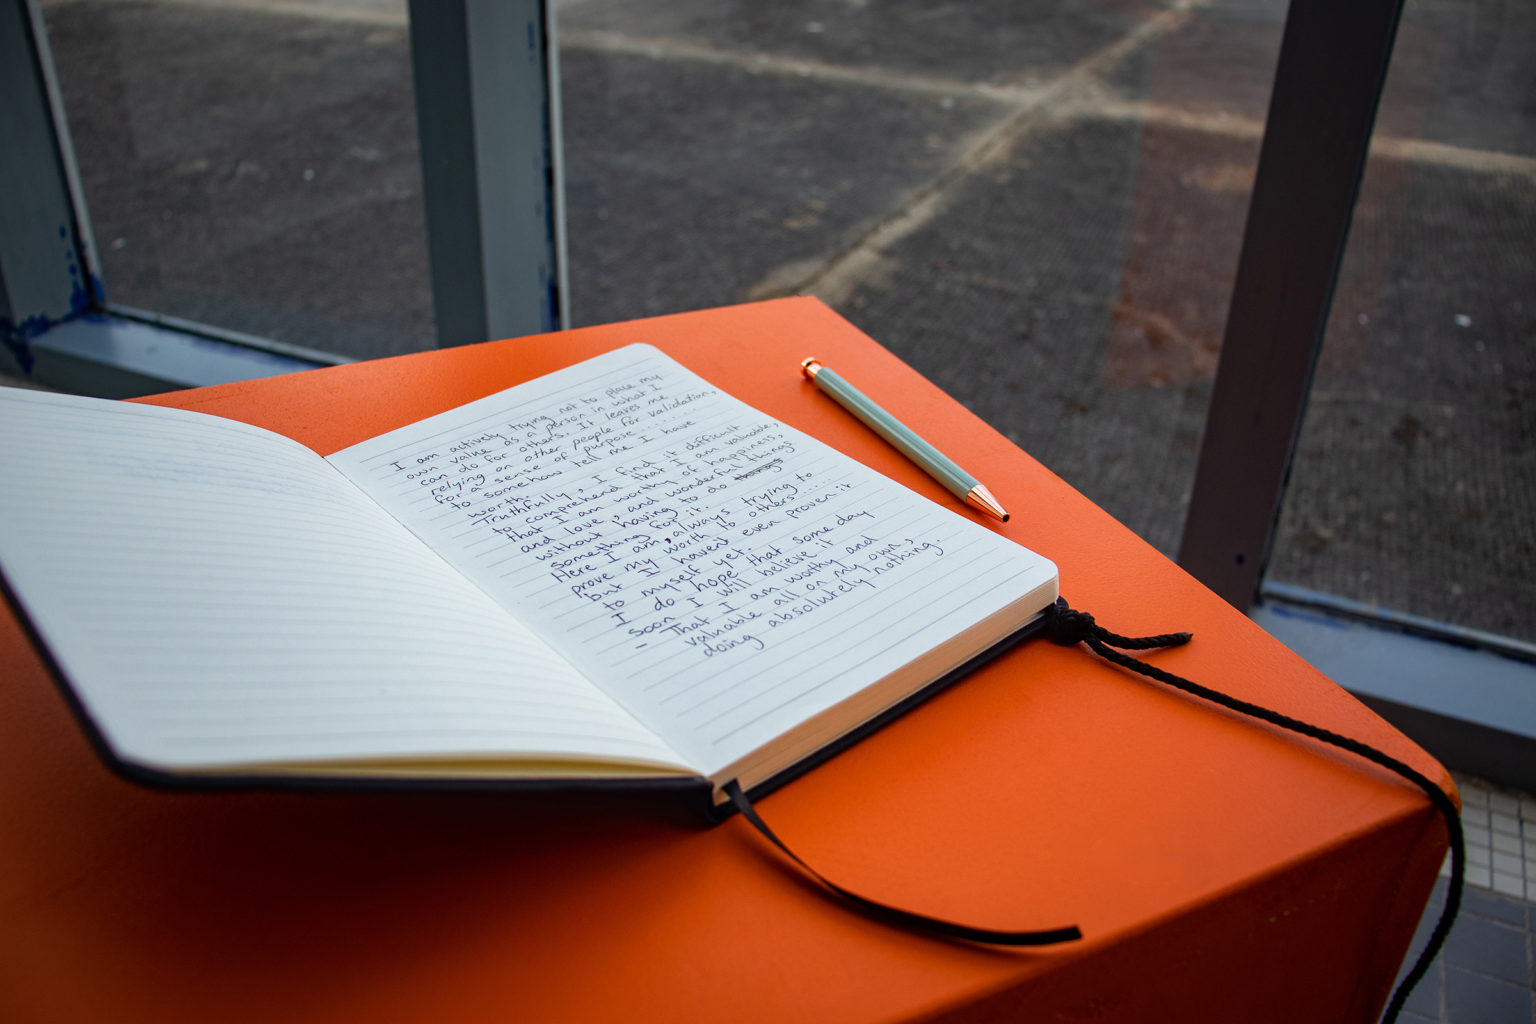 I am actively trying not to place my
own value as a person in what I
can do for others. It leaves me
relying on other people for validation,
for a sense of purpose.......
to somehow tell me I have
worth.
Truthfully, I find it difficult
to comprehend that I am valuable,
that I am worthy of happiness,
and love, and wonderful things
without having to do things
something for it.
Here I am, always trying to
prove my worth to others.....
but I haven't even proven it
to myself yet.
I do hope that some day
soon I will believe it
- That I am worthy and
valuable all on my own,
doing absolutely nothing.